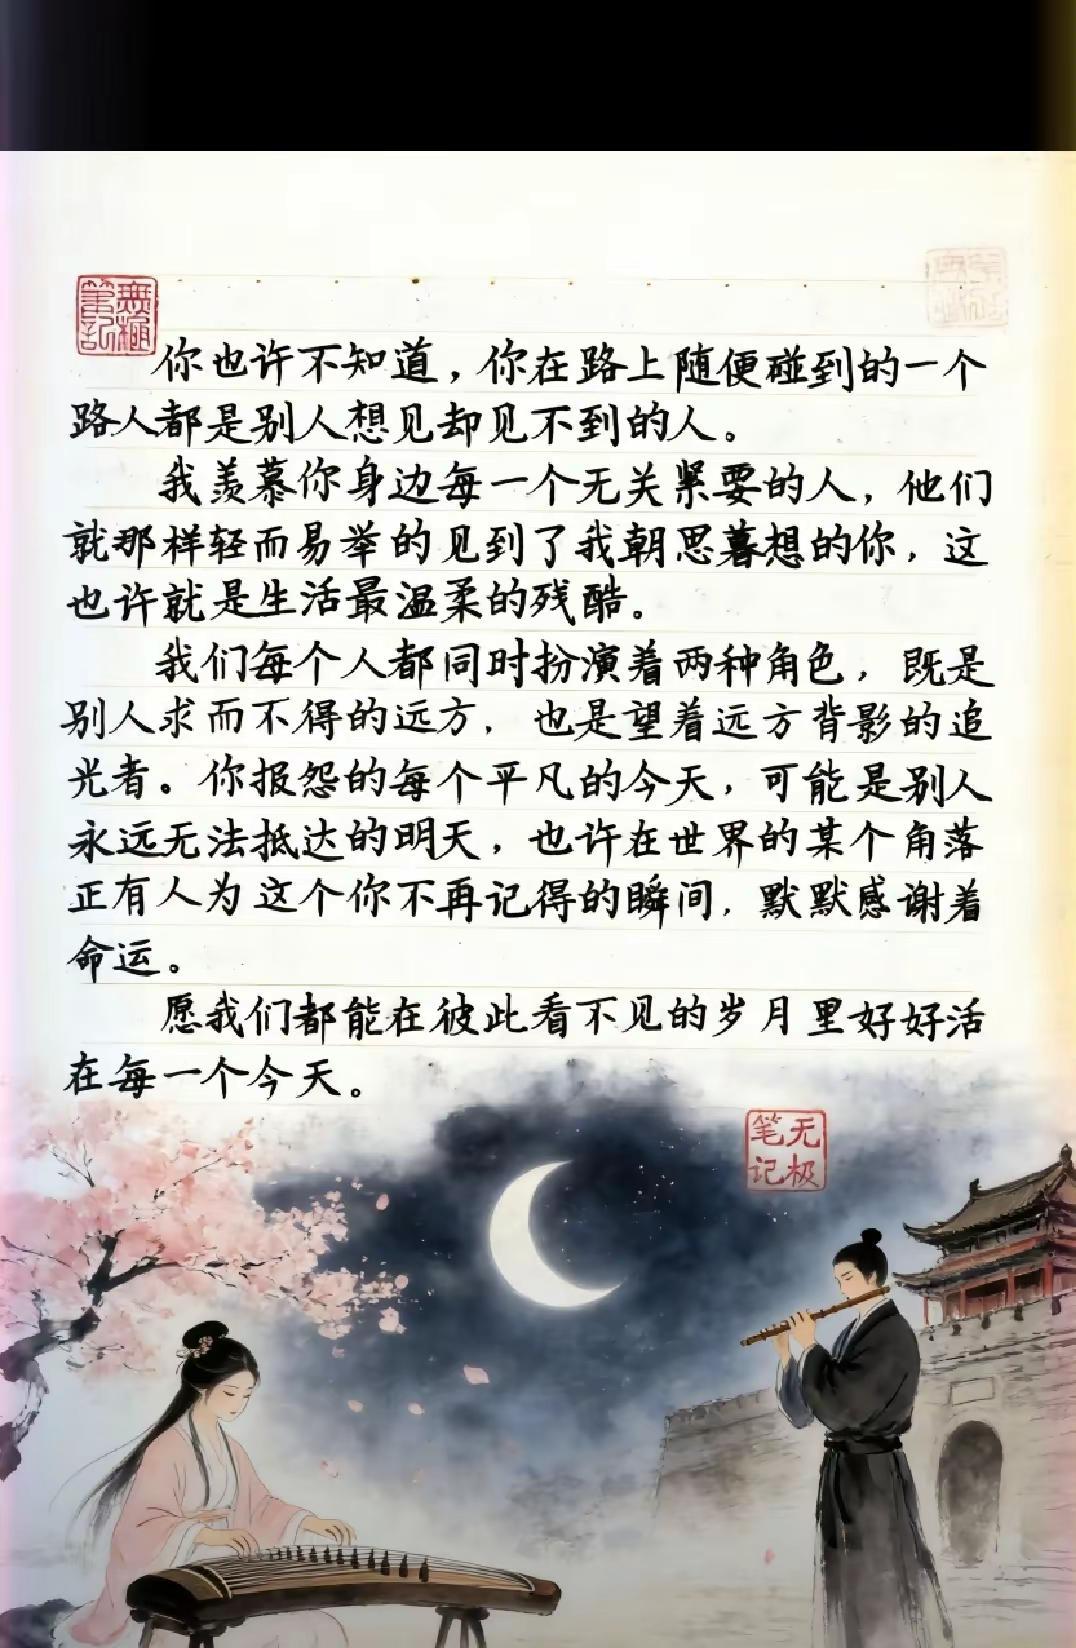 無極
筆記
你也许不知道，你在路上随便碰到的一个
路人都是别人想见却见不到的人。
我羡慕你身边每一个无关紧要的人，他们
就那样轻而易举的见到了我朝思暮想的你，这
也许就是生活最温柔的残酷。
我们每个人都同时扮演着两种角色，既是
别人求而不得的远方，也是望着远方背影的追
光者。你报怨的每个平凡的今天，可能是别人
永远无法抵达的明天，也许在世界的某个角落
正有人为这个你不再记得的瞬间，默默感谢着
命运。
愿我们都能在彼此看不见的岁月里好好活
在每一个今天。
无极
笔记